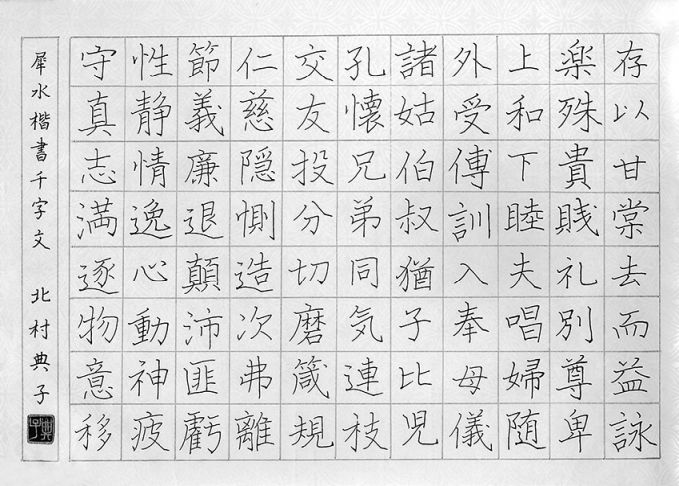 存以甘棠去而益詠
楽殊貴賎礼別尊卑
上和下睦夫唱婦随
外受傅訓入奉母儀
諸姑伯叔猶子比児
孔懐兄弟同気連枝
交友投分切磨箴規
仁慈隠惻造次弗離
節義廉退顛沛匪虧
性静情逸心動神疲
守真志満逐物意移
犀水楷書千字文 北村典子